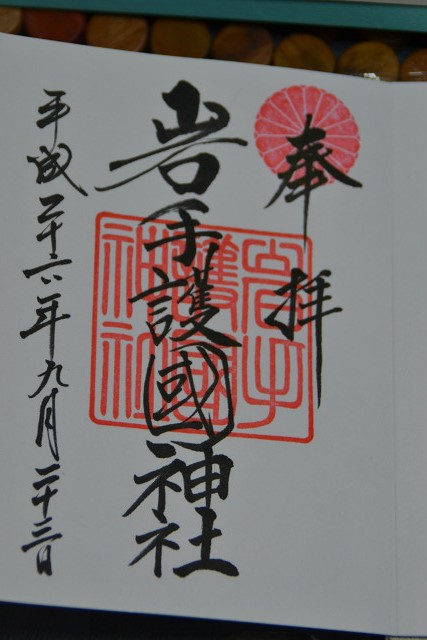 奉拝
岩手護國神社
平成二十六年九月二十三日
岩手
護國
神社